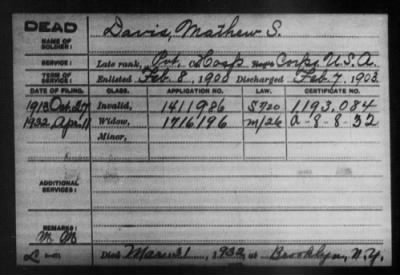 DEAD
NAME OF SOLDIER: Davis, Mathew S.
SERVICE: Late rank, Pvt. Co Hosp Regt Corps, U.S.A.
TERM OF SERVICE: Enlisted Feb. 8, 1900 Discharged Feb. 7, 1903
DATE OF FILING. CLASS. APPLICATION NO. LAW. CERTIFICATE NO.
1913 Oct. 27 Invalid, 1411986 1193.084
1932 Apr 11 Widow, 1716196 M/26 a-8-8-32
Minor,
ADDITIONAL SERVICES:
REMARKS:
Died Mar. 31, 1932, at Brooklyn, N.Y.